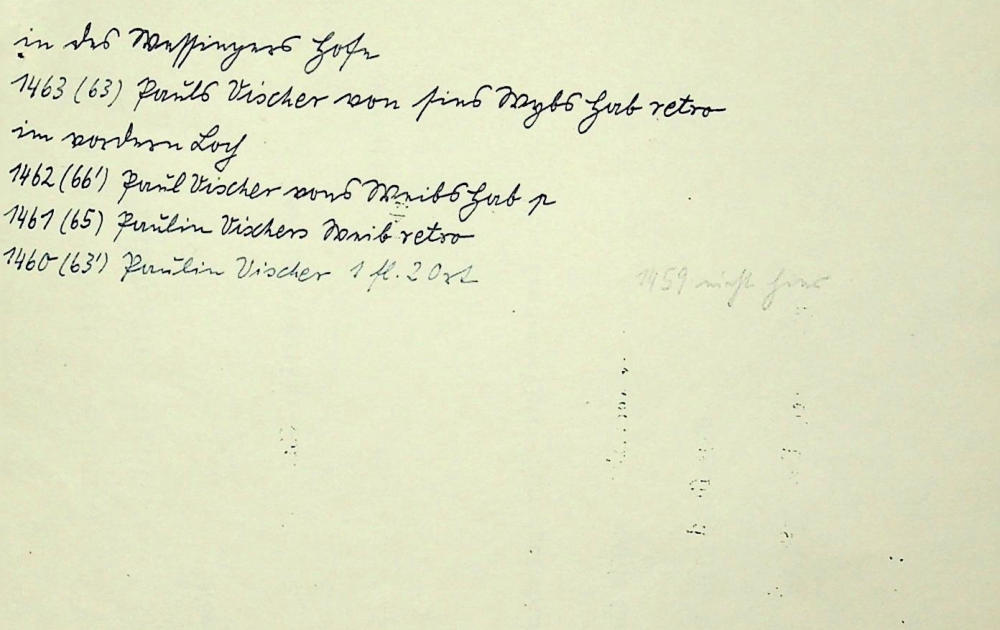 in des Messingers Hofe
1463 (63) Pauls Vischer von sins Wybs Hab retro
im vordern Loch
1462 (66') Paul Vischer vons Weibs Hab p
1461 (65) Paulin Vischers Weib retro
1460 (63') Paulin Vischer 1 fl. 2 Ort
1459 nicht hier